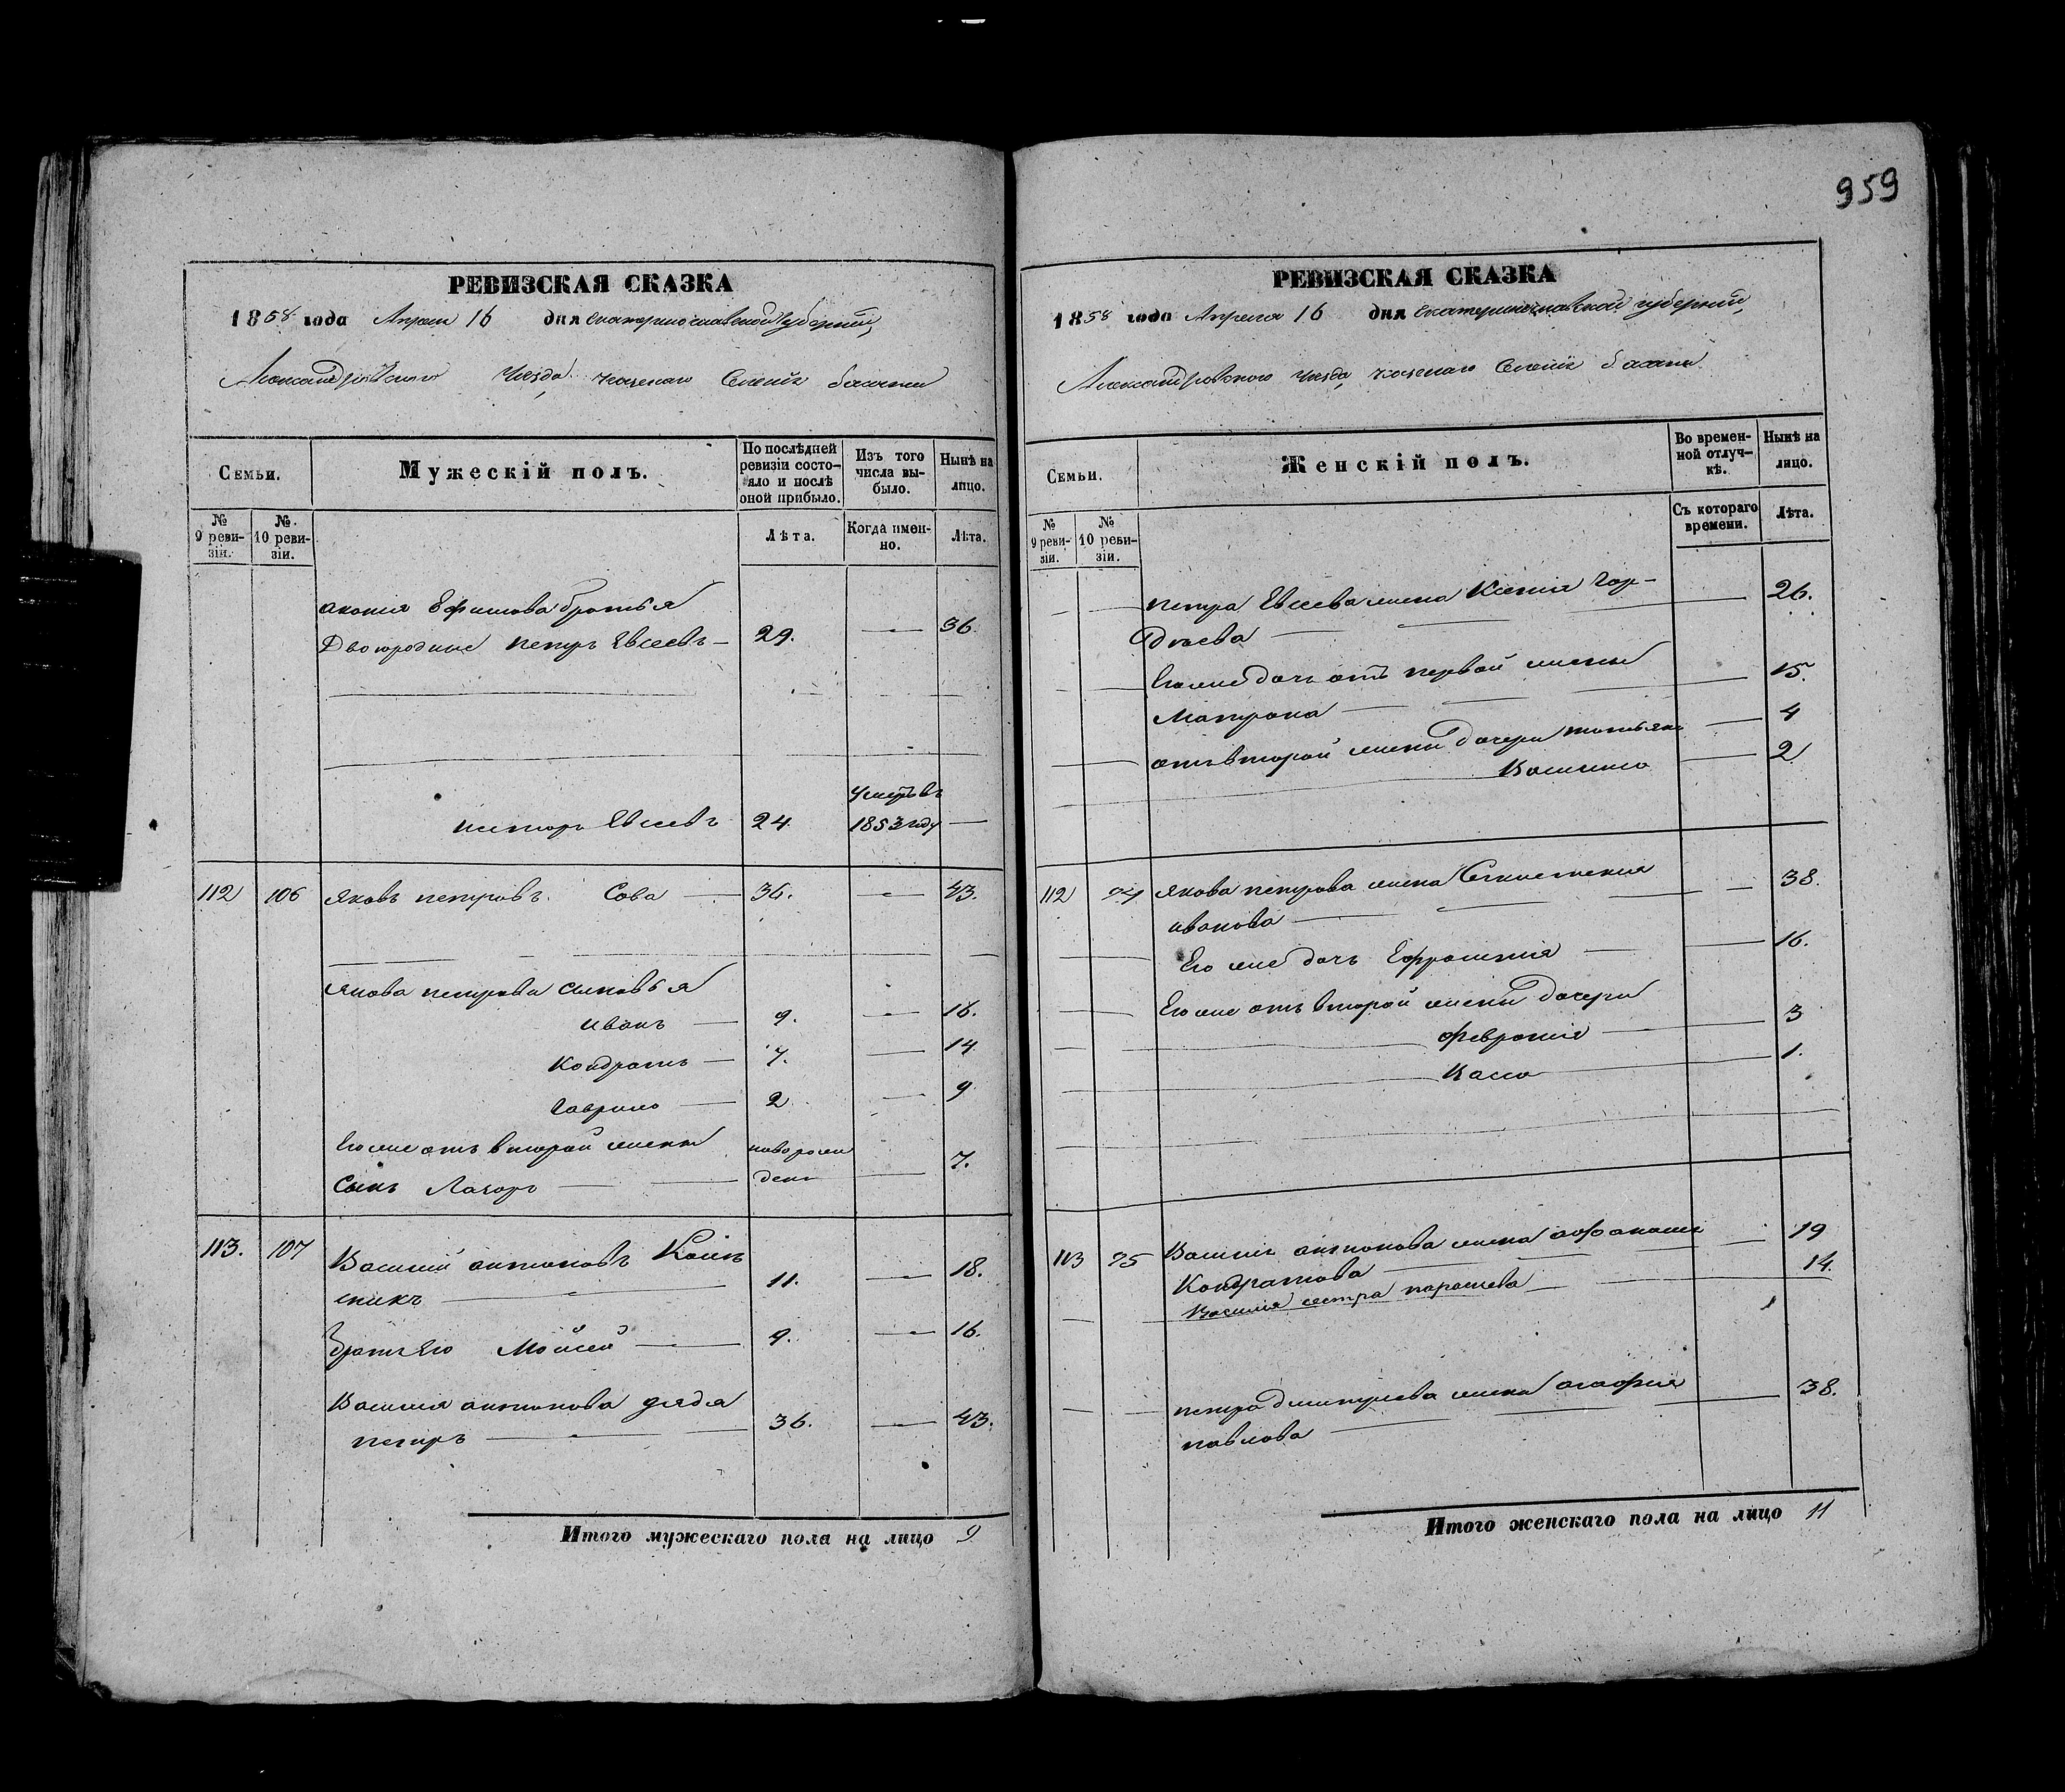 959
РЕВИЗСКАЯ СКАЗКА
1858 года Апреля 16 дня Екатеринославской губерніи,
Александровского Уезда, казенаго Селенія
Семьи.
Мужескій полъ.
По послѣдней ревизіи состояло и послѣ оной прибыло.
Изъ того числа выбыло.
Нынѣ на лицо.
№ 9 ревизіи.
№ 10 ревизіи.
Лѣта.
Когда именно.
Лѣта.
Ефимова братья
Двоюродные петръ Евсеевъ 29. 36.
умеръ въ
нестор Евсеевъ 24. 1853 году
112 106 Яковъ петровъ. Сова 36. 43.
Якова петрова сыновья
иванъ 9. 16.
Кондратъ 7. 14
гаврило 2 9
Его же от второй жены новорож
сынъ Лазарь ден 7.
113. 107 Василий антоновъ
11. 18.
братъ Его Мойсей 9. 16.
Василия антонова дядя
петръ 36. 43.
Итого мужескаго пола на лицо 9
РЕВИЗСКАЯ СКАЗКА
1858 года Апреля 16 дня Екатеринославской губерніи,
Александровского Уезда, казенаго Селенія
Семьи.
Женскій полъ.
Во временной отлучкѣ.
Нынѣ на лицо.
№ 9 ревизіи.
№ 10 ревизіи.
Съ котораго времени.
Лѣта.
петра Евсева жена Ксения Гор- 26.
дѣева
Его же дочь отъ первой жены 15.
Матрона
отъ второй жены дочери татьяна 4
Василиса 2
112 94 Якова петрова жена 38.
иванова
Его же дочь Ефросиния 16.
Его же отъ второй жены дочери
феврония 3
Васса 1.
113 95 Василия антонова жена 19
Кондратова 14.
Василия сестра парасковея
петра дмитриева жена агафия 38.
павлова
Итого женскаго пола на лицо 11